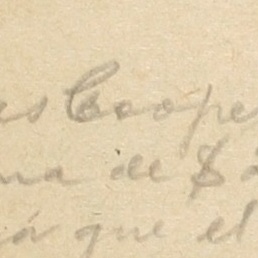 es Coope
ma de $ 2
á que el